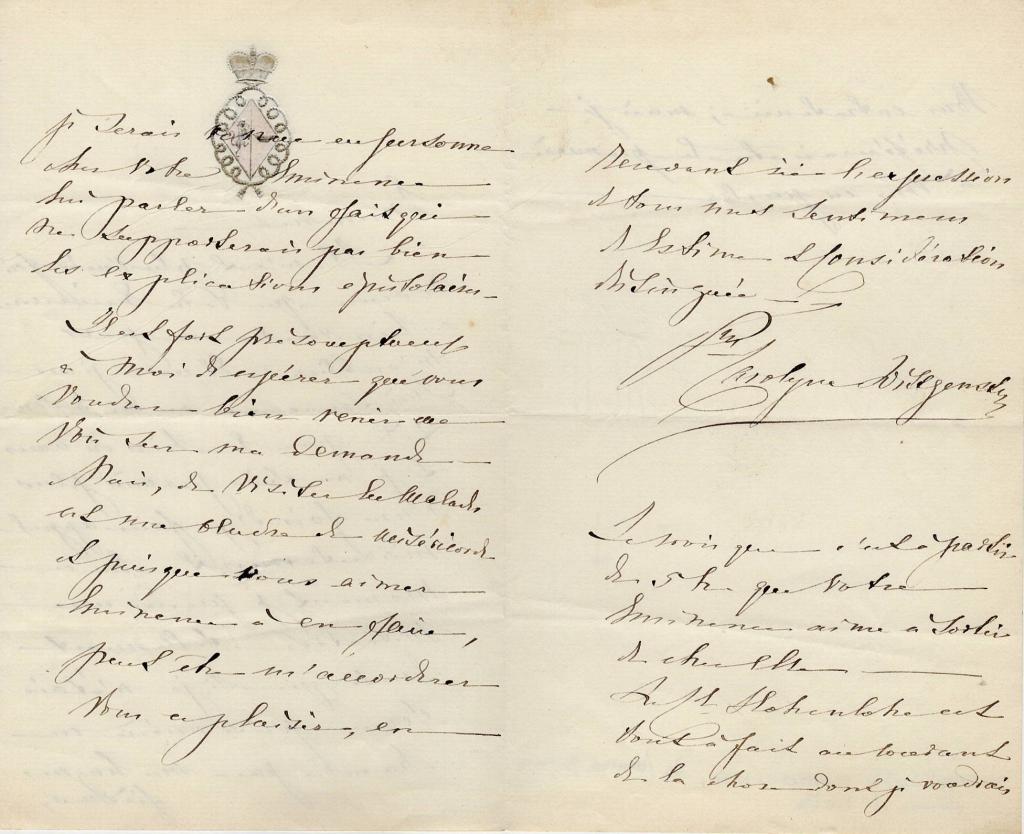 je serais venue en personne
chez Votre Eminence
lui parler d'un fait qui
ne supporterait pas bien
les explications épistolaires.
Il est fort présomptueux
à moi d'espérer que vous
voudrez bien venir me
voir sur ma demande
Mais, de visiter les malades
est une œuvre de miséricorde
et puisque vous aimez
Eminence à en faire,
peut être m'accorderez
Vous ce plaisir, en
recevant ici l'expression
de tous mes sentimens
d'Estime & Considération
distinguée
Carolyne Wittgenstein
Je sais que c'est à partir
de 5 h. que Votre
Eminence aime à sortir
de chez Elle
Hohenlohe est
tout à fait au courant
de la chose dont je voudrais